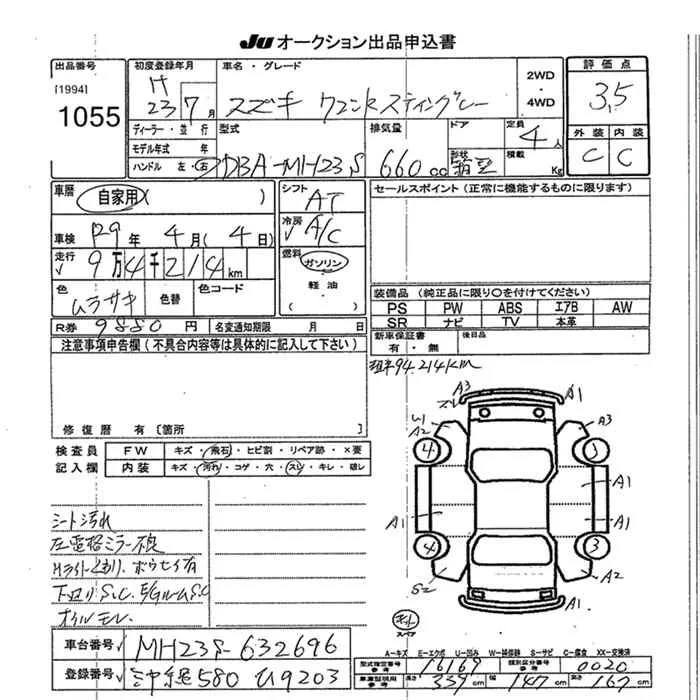 JU オークション出品申込書
出品番号
[1994]
1055
初度登録年月
H 23 7 月
ディーラー・並 行
モデル年式 年
ハンドル 左・右
車名・グレード
スズキ ワゴンR スティングレー
2WD
・
4WD
型式
DBA-MH23S
排気量
660 cc
ドア
形状
箱型
定員
4人
積載
Kg
評 価 点
3.5
外 装 内 装
C C
車歴
自家用( )
車検 H29 年 4 月 ( 4 日)
走行
9万4千214 km
色
ムラサキ
色替
色コード
R券 9880 円 名変通知期限 月 日
シフト
AT
冷房
A/C
燃料
ガソリン
・
軽 油
( )
セールスポイント (正常に機能するものに限ります)
装備品 (純正品に限り○を付けてください)
PS PW ABS エアB AW
SR ナビ TV 本革
新車保証書
有 ・ 無
後日品
注意事項申告欄 (不具合内容等は具体的に記入して下さい)
修 復 歴 有 [箇所 ]
94214km
検 査 員 FW キズ・飛石・ヒビ割・リペア跡・×要
記 入 欄 内 装 キズ・汚れ・コゲ・穴・スレ・キレ・破レ
シート汚れ
左電格ミラー不良
Hライトくもり. ボウセイ有
下回りS.C. E/GルームS.C
オイルモレ.
A3 A1
U1 A2 A3
4 3
A1
A1 A1
4 3
S2 A2
A1
スペア
A-キズ E-エクボ U-凹み W-補修跡 S-サビ C-腐食 XX-交換済
車台番号 MH23S-632696
登録番号 580 9203
型式指定番号 参考 16169 類別区分番号 参考 0020
車庫証明用 参考 長さ 339 cm 幅 147 cm 高さ 167 cm